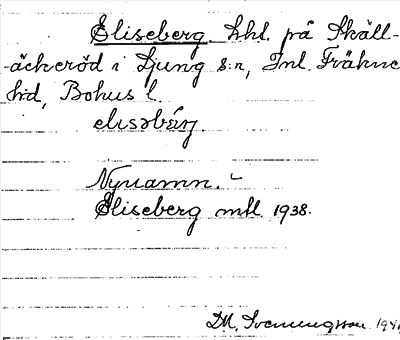 Eliseberg. Lht. på Skäll-
-äckeröd i Ljung s:n, Inl. Fräkne
hd, Bohus l.
elisəbärj.
Nynamn.
Eliseberg mtl. 1938.
D.A. Svenningsson 194